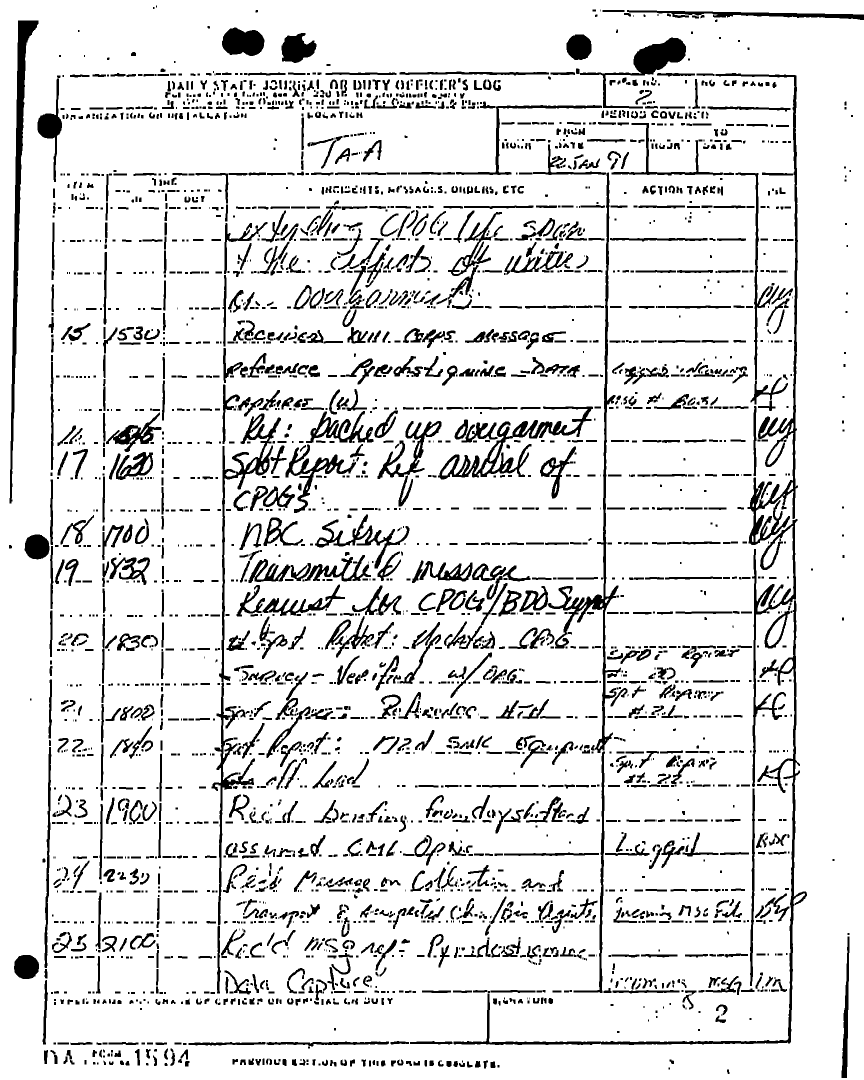 DAILY STAFF JOURNAL OR DUTY OFFICER'S LOG
PAGE NO.
2
NO. OF PAGES
ORGANIZATION OR INSTALLATION
LOCATION
TA-A
PERIOD COVERED
FROM
TO
HOUR
DATE
22 JAN 91
HOUR
DATE
ITEM NO.
TIME
IN
OUT
INCIDENTS, MESSAGES, ORDERS, ETC
ACTION TAKEN
INL
extending CPOG life span
& the effects of
overgarments
15 1530 Received XVIII Corps message
reference Pyridostigmine Data Logged incoming
Captures (U) MSG #
Ref: Packed up overgarment
17 1630 Spot Report: Ref arrival of
CPOG's
18 1700 NBC Sitrep
19 1832 Transmitted message
Request for CPOG/BDO Support
20 1830 Spot Report: Updated CPOG
Survey - Verified w/ Spot Report
# 20
21 1800 Spot Report: Reference Spot Report
# 21
22 1840 Spot Report: Smk Equipment
off load Spot Report
# 22
23 1900 Rec'd briefing from dayshift and
assumed CML Opns Logged
24 2230 Rec'd Message on Collection and
Transport of suspected Chem/Bio Agents Incoming MSG File
25 2100 Rec'd msg ref: Pyridostigmine
Data Capture Incoming msg
TYPED NAME AND GRADE OF OFFICER OR OFFICIAL ON DUTY
SIGNATURE
2
DA FORM 1594
PREVIOUS EDITION OF THIS FORM IS OBSOLETE.